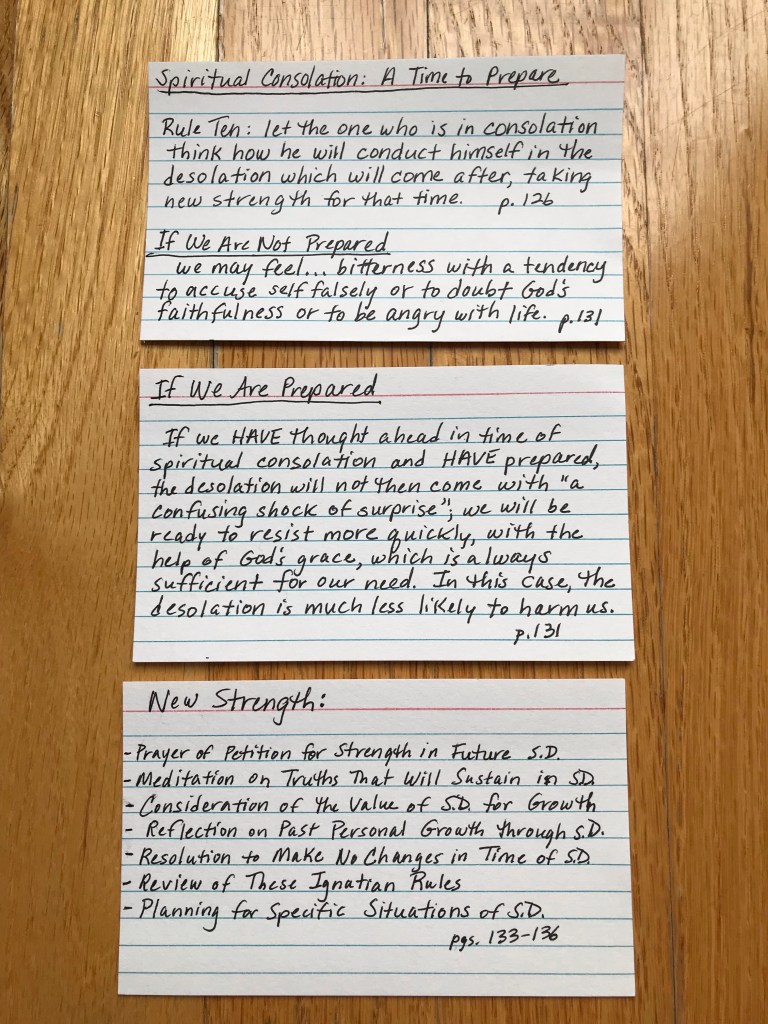 Spiritual Consolation: A Time to Prepare
Rule Ten: let the one who is in consolation
think how he will conduct himself in the
desolation which will come after, taking
new strength for that time. p. 126
If We Are Not Prepared
we may feel... bitterness with a tendency
to accuse self falsely or to doubt God's
faithfulness or to be angry with life. p.131
If We Are Prepared
If we HAVE thought ahead in time of
spiritual consolation and HAVE prepared,
the desolation will not then come with "a
confusing shock of surprise"; we will be
ready to resist more quickly, with the
help of God's grace, which is always
sufficient for our need. In this case, the
desolation is much less likely to harm us.
p.131
New Strength:
- Prayer of Petition for Strength in Future S.D.
- Meditation on Truths That Will Sustain in S.D.
- Consideration of the Value of S.D. for Growth
- Reflection on Past Personal Growth through S.D.
- Resolution to Make No Changes in Time of S.D.
- Review of These Ignatian Rules
- Planning for Specific Situations of S.D.
pgs. 133-136